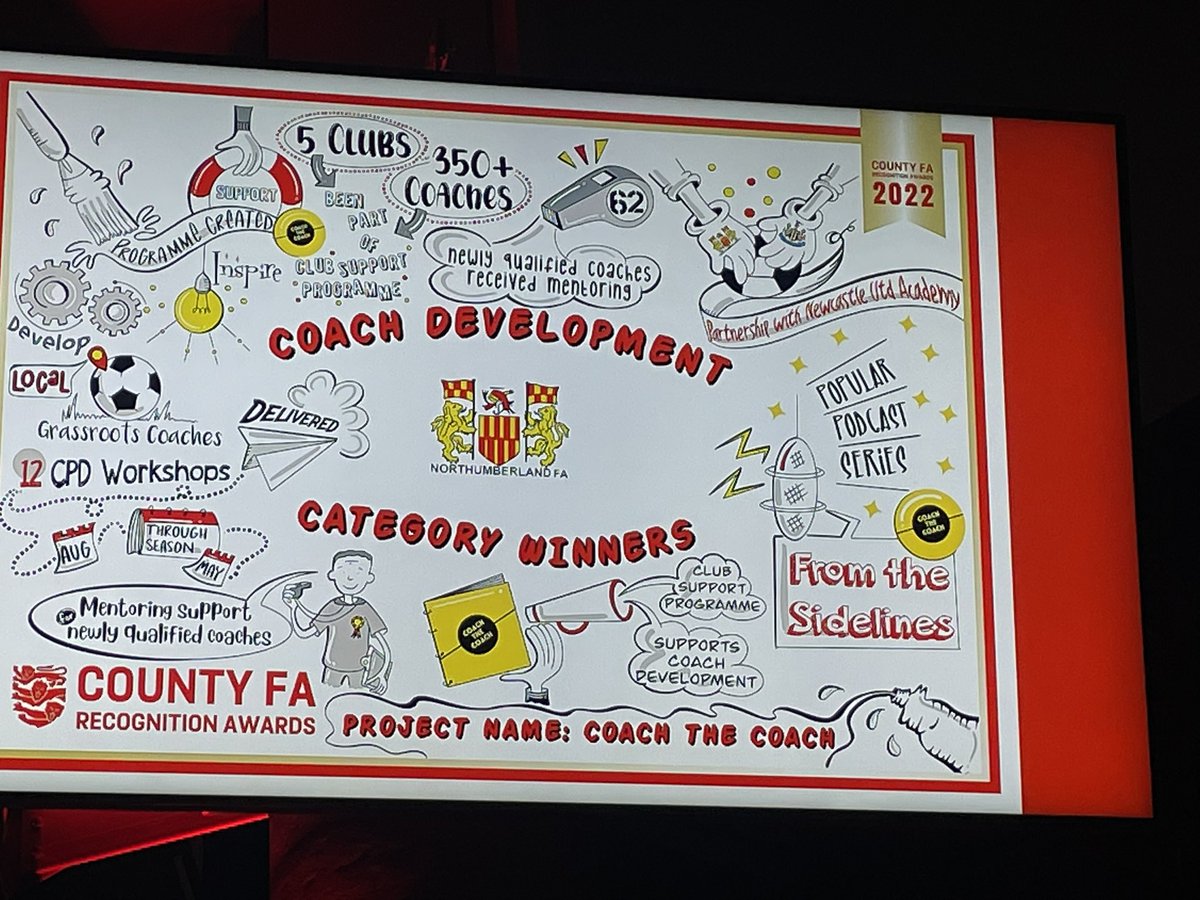 5 CLUBS
350+
COACHES
BEEN
PART
OF
CLUB SUPPORT
PROGRAMME
SUPPORT
PROGRAMME CREATED
COACH
THE
COACH
Inspire
Develop
62
newly qualified coaches
received mentoring
COUNTY FA
RECOGNITION AWARDS
2022
Partnership with Newcastle Utd Academy
COACH DEVELOPMENT
NORTHUMBERLAND FA
CATEGORY WINNERS
LOCAL
Grassroots Coaches
DELIVERED
12 CPD Workshops
AUG
THROUGH
SEASON
MAY
POPULAR
PODCAST
SERIES
COACH
THE
COACH
From the
Sidelines
For Mentoring support
newly qualified coaches
COACH
THE
COACH
CLUB
SUPPORT
PROGRAMME
SUPPORTS
COACH
DEVELOPMENT
COUNTY FA
RECOGNITION AWARDS
PROJECT NAME: COACH THE COACH